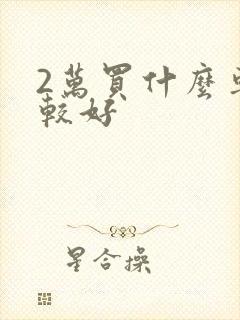 2萬買什麼
較好
星合操